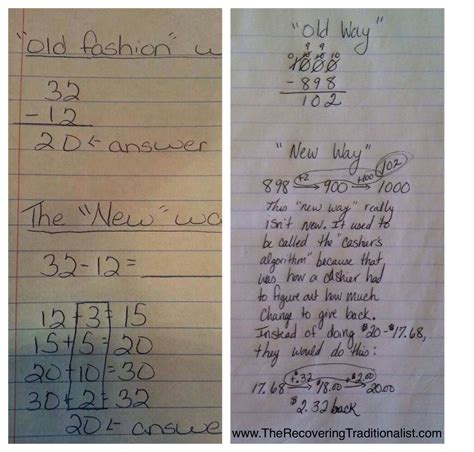 "old fashion" w
32
- 12
20 ← answer
The "New" wa
32-12=
12+3=15
15+5=20
20+10=30
30+2=32
20 ← answe
"Old Way"
9 9
0 10 10 10
1000
- 898
102
"New Way"
+2 +100 102
898 → 900 → 1000
This "new way" really
isn't new. It used to
be called the "cashier's
algorithm" because that
was how a cashier had
to figure out how much
change to give back.
Instead of doing $20-$17.68,
they would do this:
+.32 +$2.00
17.68 → $18.00 → 20.00
$2.32 back
www.TheRecoveringTraditionalist.com